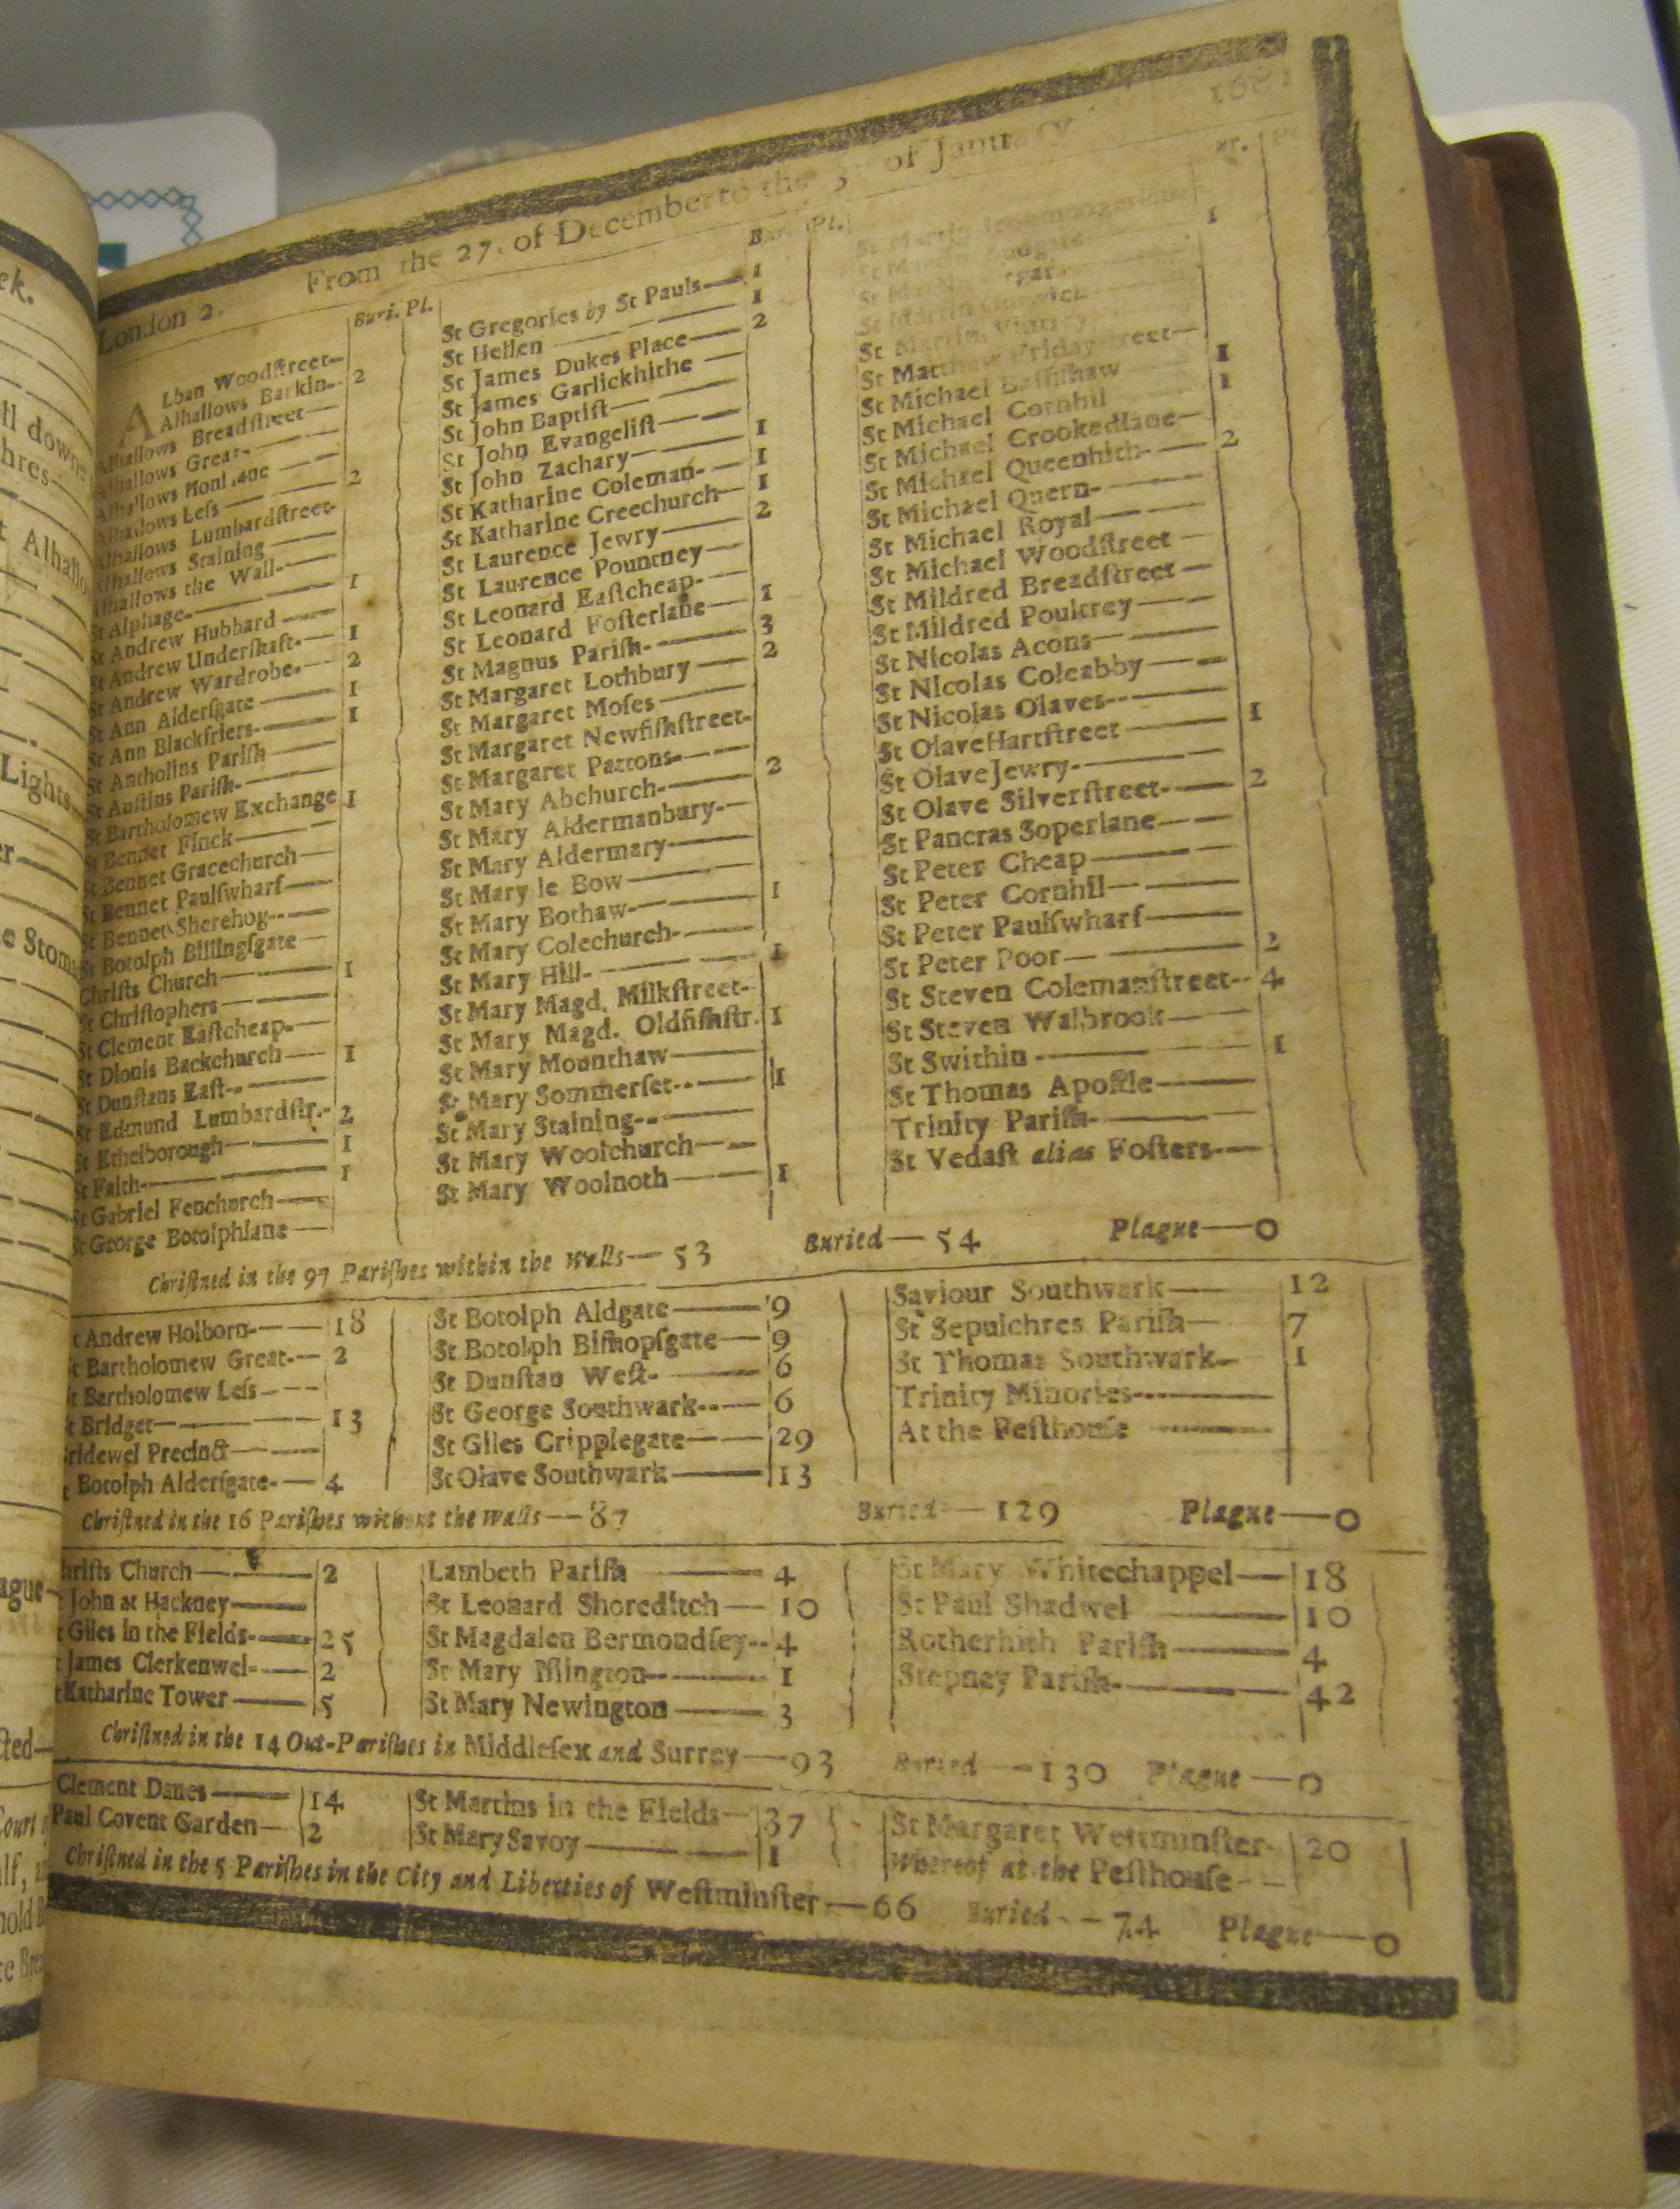 London 2. From the 27. of December to the 3. of January 1681
Buri. Pl.
ALban Woodſtreet—
Alhallows Barkin— 2
Alhallows Breadſtreet—
Alhallows Great—
Alhallows Honi Lane —
Alhallows Leſs — 2
Alhallows Lumbardſtreet-
Alhallows Staining —
Alhallows the Wall-—
St Alphage-— 1
St Andrew Hubbard —
St Andrew Underſhaft-— 1
St Andrew Wardrobe-— 2
St Ann Alderſgate — 1
St Ann Blackfriers-— 1
St Antholins Pariſh —
St Auſtins Pariſh-—
St Bartholomew Exchange 1
St Bennet Finck —
St Bennet Gracechurch —
St Bennet Paulſwharf —
St Bennet Sherehog--—
St Botolph Billingſgate —
Chriſts Church — 1
St Chriſtophers —
St Clement Eaſtcheap-—
St Dionis Backchurch — 1
St Dunſtans Eaſt--—
St Edmund Lumbardſtr.- 2
St Ethelborough — 1
St Faith-— 1
St Gabriel Fenchurch —
St George Botolphlane —
Pl.
St Gregories by St Pauls — 1
St Hellen — 1
St James Dukes Place — 2
St James Garlickhithe —
St John Baptiſt —
St John Evangeliſt —
St John Zachary — 1
St Katharine Coleman- — 1
St Katharine Creechurch — 1
St Laurence Jewry — 2
St Laurence Pountney —
St Leonard Eaſtcheap-—
St Leonard Foſterlane — 1
St Magnus Pariſh-— 3
St Margaret Lothbury — 2
St Margaret Moſes —
St Margaret Newfiſhſtreet-
St Margaret Pattons-—
St Mary Abchurch-— 2
St Mary Aldermanbury-—
St Mary Aldermary-—
St Mary le Bow —
St Mary Bothaw-— 1
St Mary Colechurch-—
St Mary Hill- — 1
St Mary Magd. Milkſtreet-
St Mary Magd. Oldfiſhſtr. 1
St Mary Mounthaw —
St Mary Sommerſet--— 1
St Mary Staining--—
St Mary Woolchurch —
St Mary Woolnoth — 1
St Martin Vintrey
St Matthew Fridayſtreet—
St Michael Baſſiſhaw 1
St Michael Cornhil 1
St Michael Crookedlane—
St Michael Queenhith-— 2
St Michael Quern-—
St Michael Royal —
St Michael Woodſtreet —
St Mildred Breadſtreet —
St Mildred Poultrey —
St Nicolas Acons —
St Nicolas Coleabby —
St Nicolas Olaves-—
St Olave Hartſtreet — 1
St Olave Jewry-—
St Olave Silverſtreet-— 2
St Pancras Soperlane —
St Peter Cheap —
St Peter Cornhil —
St Peter Paulſwharf —
St Peter Poor — 2
St Steven Colemanſtreet-- 4
St Steven Walbrook —
St Swithin -— 1
St Thomas Apoſtle —
Trinity Pariſh-—
St Vedaſt alias Foſters-—
Chriſtned in the 97 Pariſhes within the Walls — 53 Buried — 54 Plague — 0
St Andrew Holborn-— 18
St Bartholomew Great-— 2
St Bartholomew Leſs --—
St Bridget — 13
Bridewel Precinct —
Botolph Alderſgate-— 4
St Botolph Aldgate — 9
St Botolph Biſhopſgate — 9
St Dunſtan Weſt- — 6
St George Southwark--— 6
St Giles Cripplegate — 29
St Olave Southwark — 13
Saviour Southwark — 12
St Sepulchres Pariſh — 7
St Thomas Southwark- 1
Trinity Minories-—
At the Peſthouſe —
Chriſtned in the 16 Pariſhes without the Walls — 87 Buried — 129 Plague — 0
Chriſts Church — 2
John at Hackney —
Giles in the Fields-— 25
James Clerkenwel-— 2
Katharine Tower — 5
Lambeth Pariſh — 4
St Leonard Shoreditch — 10
St Magdalen Bermondſey-- 4
St Mary Iſlington-— 1
St Mary Newington — 3
St Mary Whitechappel — 18
St Paul Shadwel — 10
Rotherhith Pariſh — 4
Stepney Pariſh-— 42
Chriſtned in the 14 Out-Pariſhes in Middleſex and Surrey — 93 Buried — 130 Plague — 0
Clement Danes — 14
Paul Covent Garden — 2
St Martins in the Fields — 37
St Mary Savoy — 1
St Margaret Weſtminſter- 20
Whereof at the Peſthouſe -—
Chriſtned in the 5 Pariſhes in the City and Liberties of Weſtminſter — 66 Buried — 74 Plague — 0